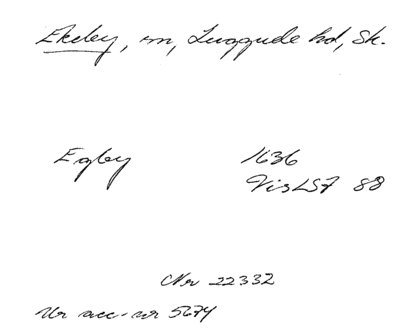 Ekeby, m, Luggude hd, Sk.
Egby 1636
VisLSF 88
Nr 22332
Ur acc-nr 5674